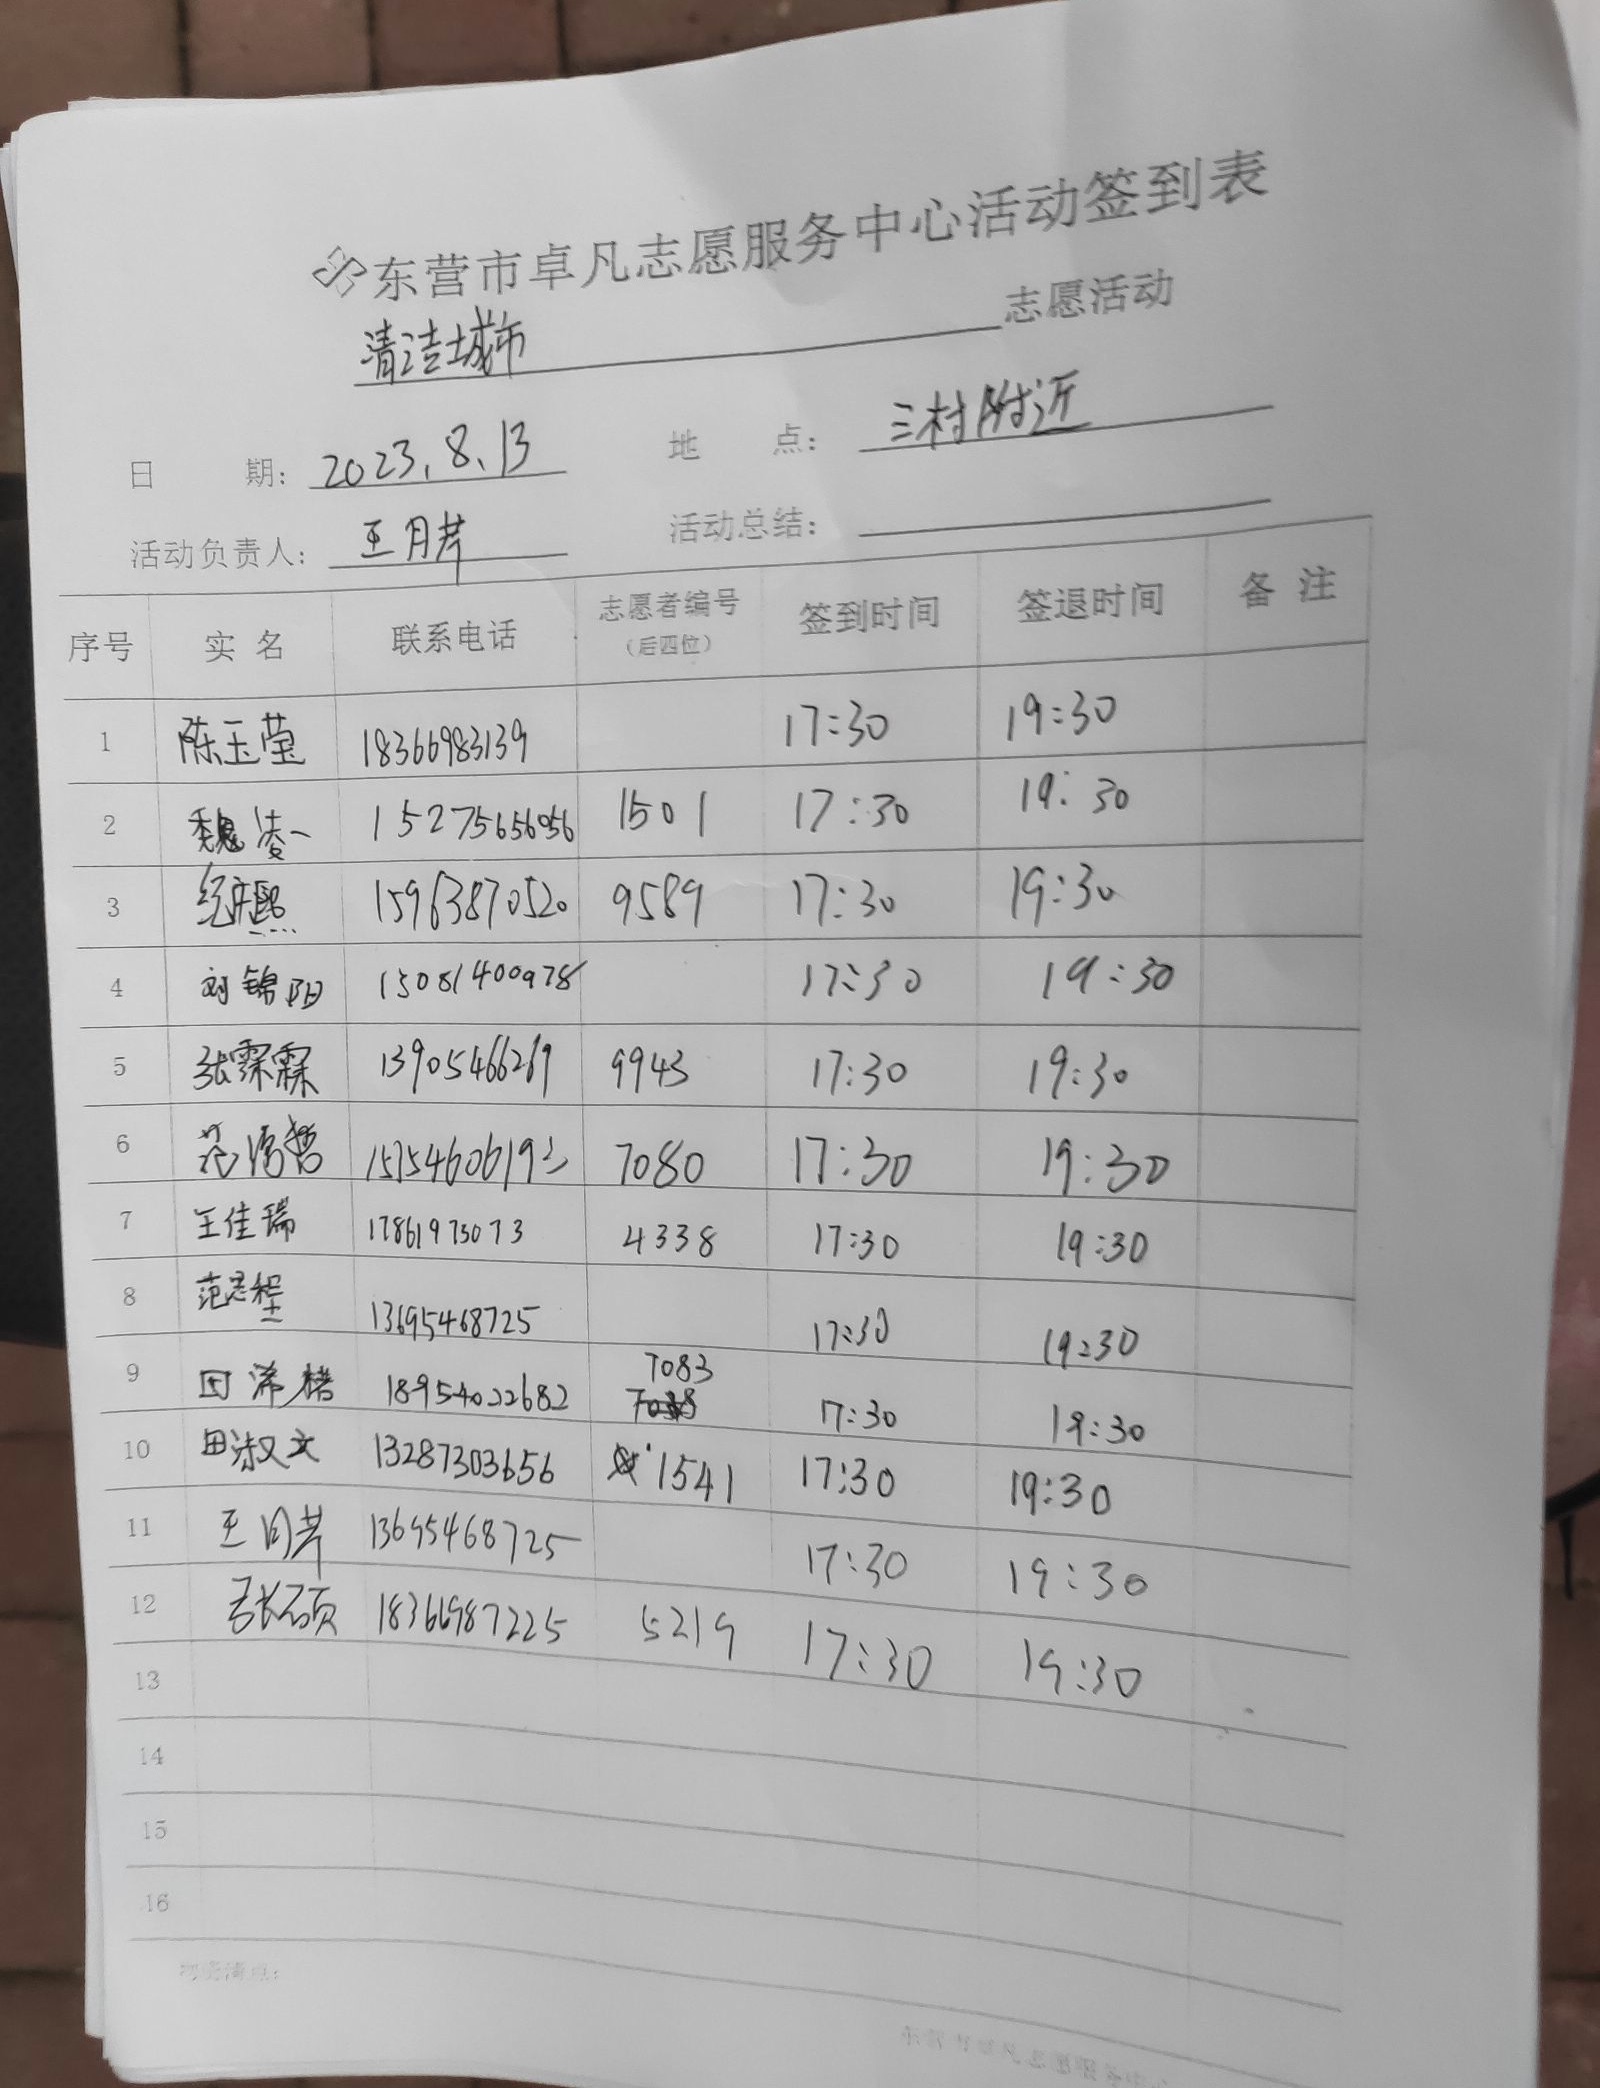 东营市卓凡志愿服务中心活动签到表
清洁城市 志愿活动
日 期: 2023.8.13 地 点: 三村附近
活动负责人: 王月芹 活动总结:
序号 实名 联系电话 志愿者编号(后四位) 签到时间 签退时间 备注
1 陈玉莹 18366983139 17:30 19:30
2 魏凌一 15275656956 1501 17:30 19:30
3 15963870520 9589 17:30 19:30
4 刘锦阳 15081400978 17:30 19:30
5 张霖霖 13905466269 9943 17:30 19:30
6 7080 17:30 19:30
7 王佳瑞 17861973073 4338 17:30 19:30
8 范志程 13695468725 17:30 19:30
9 18954022682 7083 17:30 19:30
10 田淑文 13287303656 1541 17:30 19:30
11 王月芹 13695468725 17:30 19:30
12 18366987225 5219 17:30 19:30
13
14
15
16